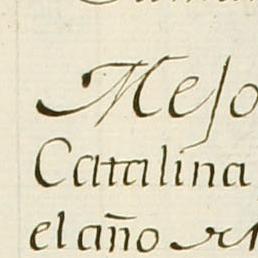 Meſo
Catalina
el año